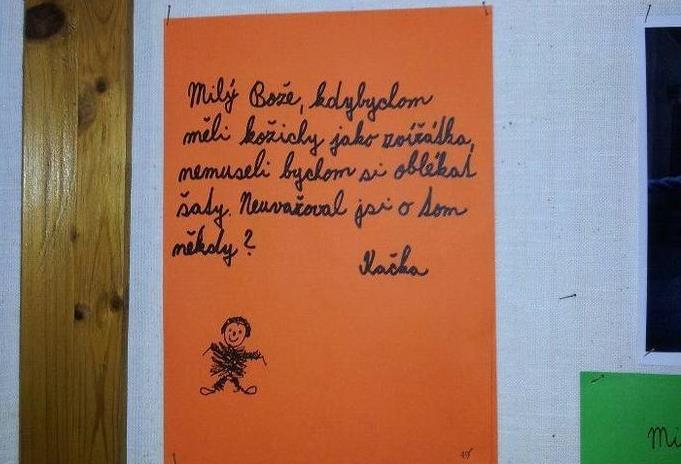 Milý Bože, kdybychom
měli kožichy jako zvířátka,
nemuseli bychom si oblékat
šaty. Neuvažoval jsi o tom
někdy?
Kačka
Mi